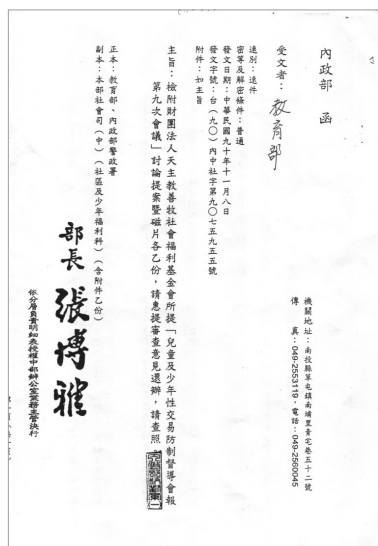 內政部　函
機關地址：南投縣草屯鎮南埔里青宅巷五十二號
傳　　真：049-2553119，電話：049-2560045
受文者：教育部
速別：速件
密等及解密條件：普通
發文日期：中華民國九十年十一月八日
發文字號：台（九〇）內中社字第九〇七五九五五號
附件：如主旨
主旨：檢附財團法人天主教善牧社會福利基金會所提「兒童及少年性交易防制督導會報
第九次會議」討論提案暨磁片各乙份，請惠提審查意見還辦，請查照。
正本：教育部、內政部警政署
副本：本部社會司（中）（社區及少年福利科）（含附件乙份）
部長 張博雅
依分層負責明細表授權中部辦公室業務主管決行